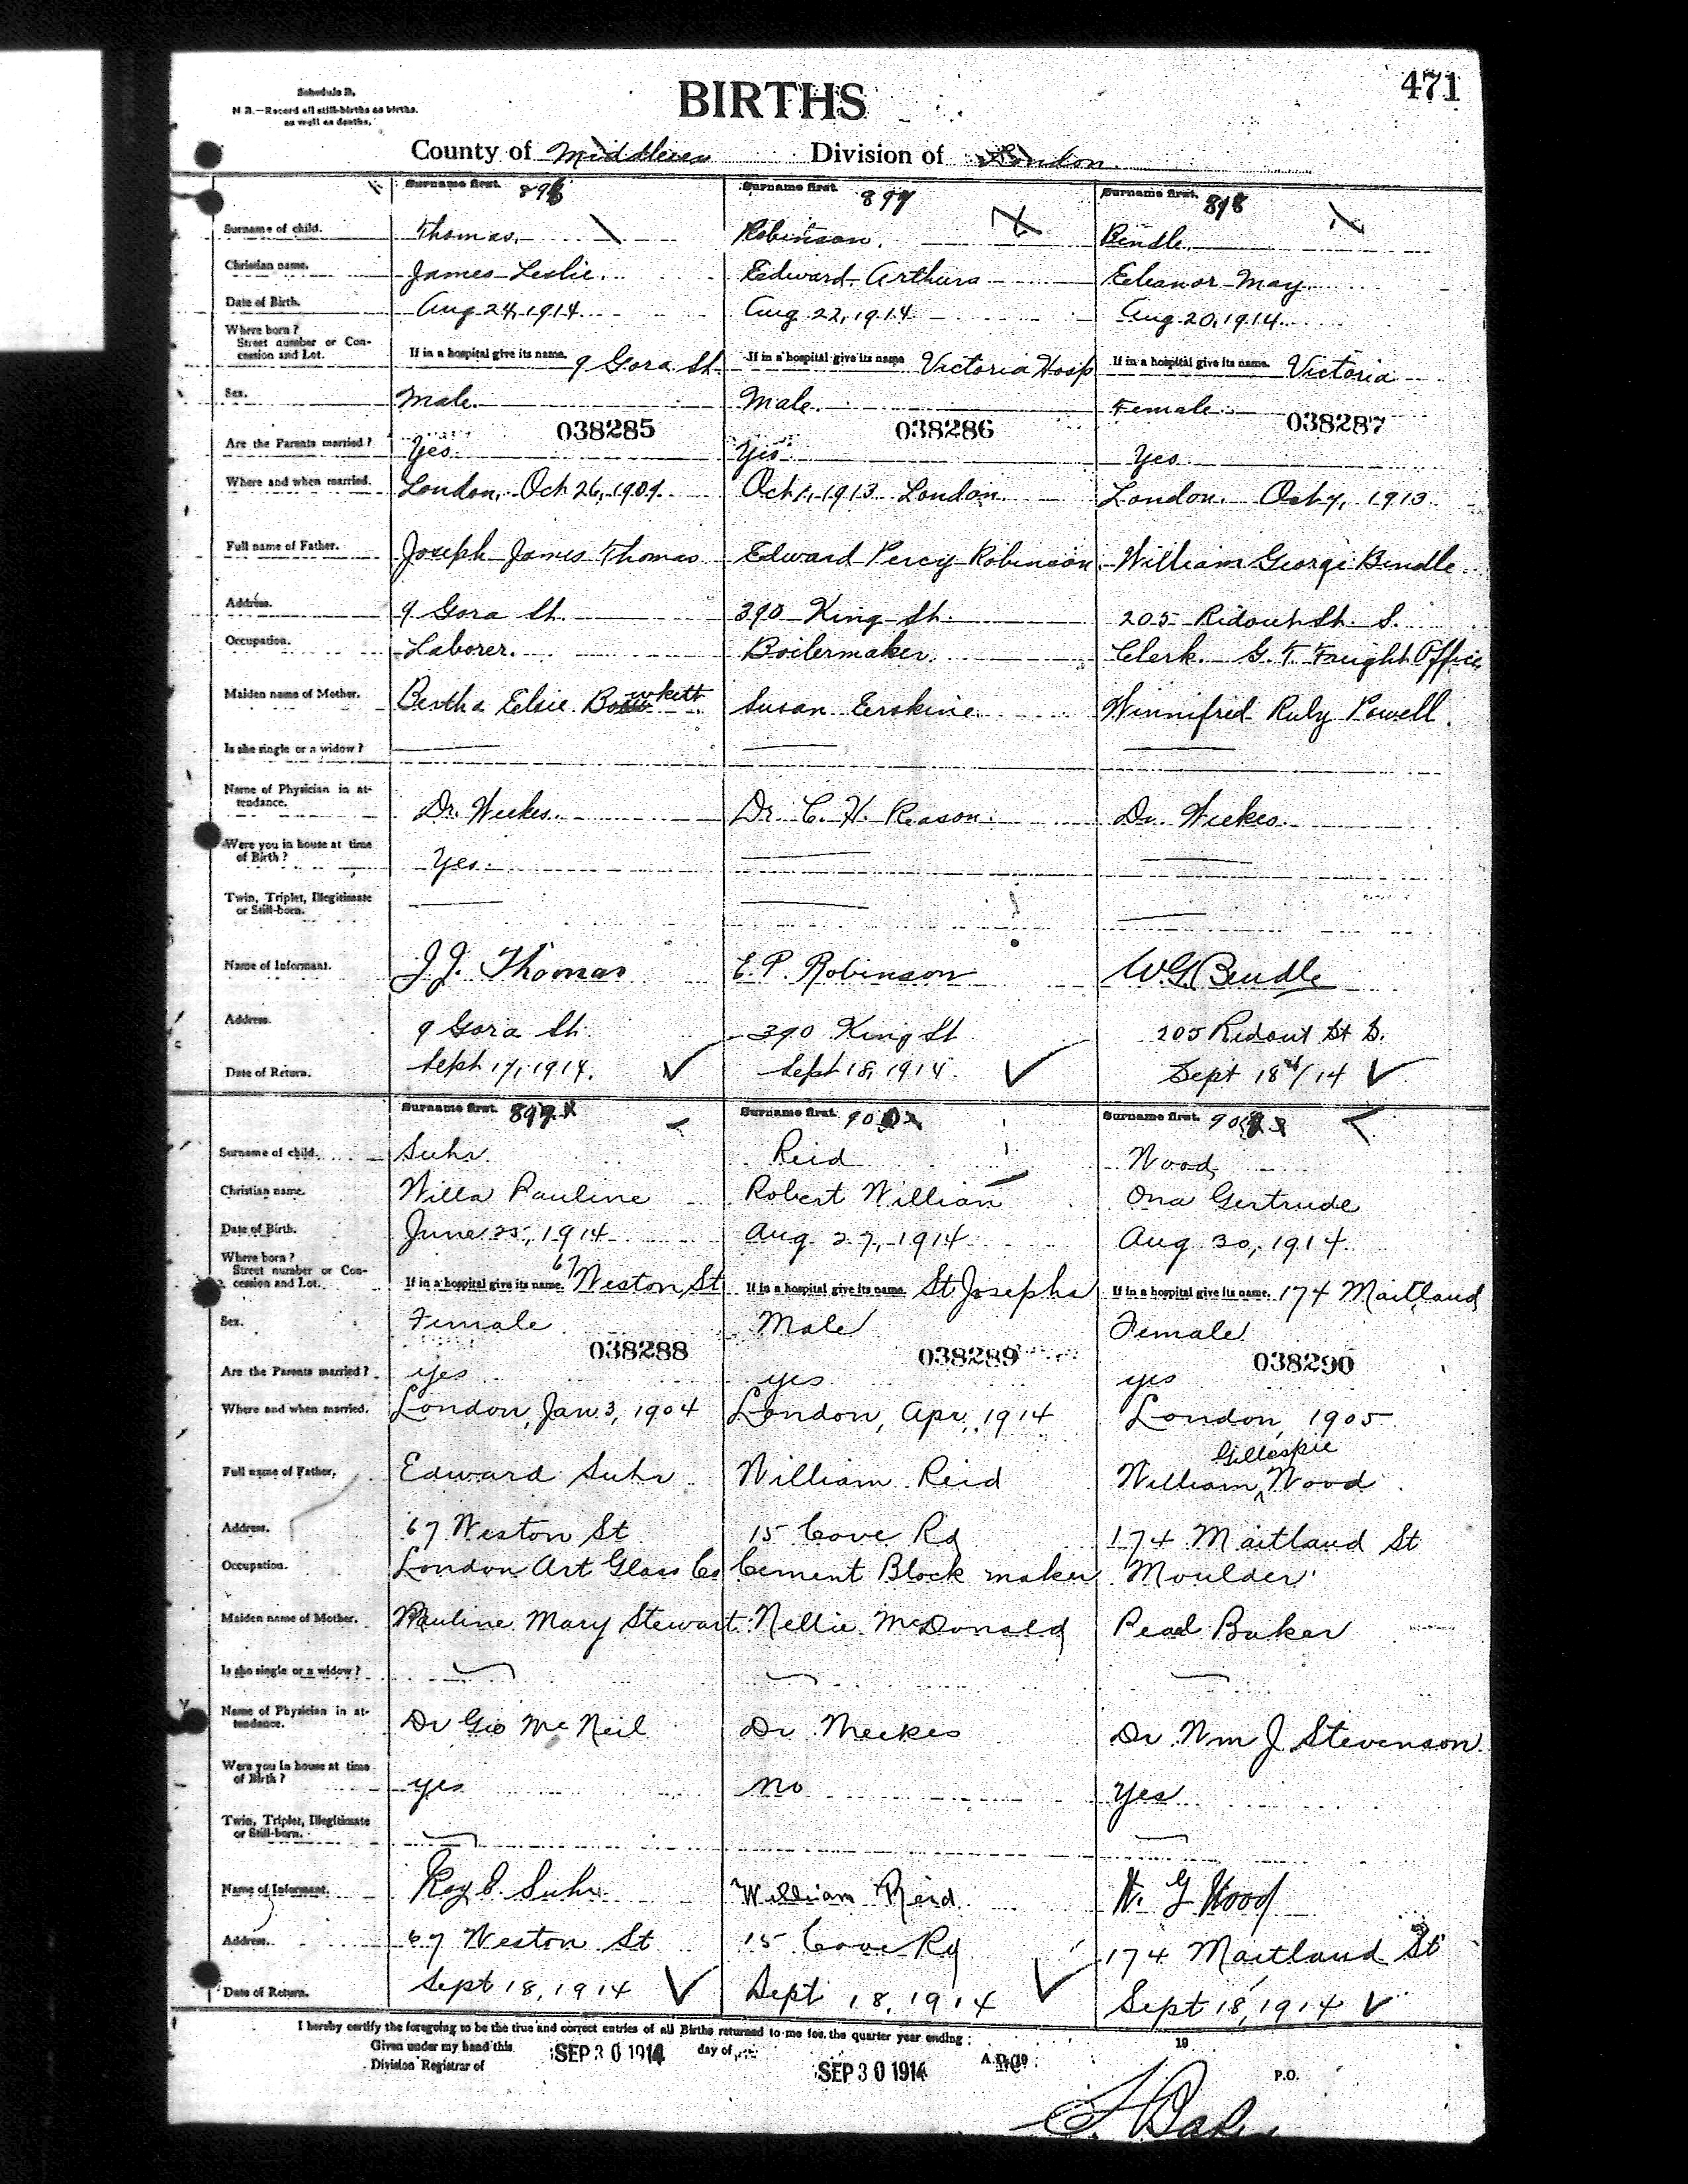 471
Schedule B.
N.B.—Record all still-births as births,
as well as deaths.
BIRTHS
County of Middlesex Division of London
Surname first. 896 Surname first. 897 Surname first. 898
Surname of child. Thomas. Robinson. Bendle
Christian name. James Leslie. Edward Arthur Eleanor May
Date of Birth. Aug 24, 1914. Aug 22, 1914 Aug 20, 1914
Where born?
Street number or Con-
cession and Lot. If in a hospital give its name. 9 Gora St. If in a hospital give its name Victoria Hosp If in a hospital give its name. Victoria
Sex. Male Male. Female
038285 038286 038287
Are the Parents married? Yes. Yes. Yes
Where and when married. London, Oct 26, 1909. Oct 1, 1913 London London. Oct 7, 1913
Full name of Father. Joseph James Thomas Edward Percy Robinson William George Bendle
Address. 9 Gora St. 390 King St. 205 Ridout St. S.
Occupation. Laborer. Boilermaker. Clerk. G. T. Freight Office
Maiden name of Mother. Bertha Elsie Susan Erskine Winnifred Ruby Powell.
Is she single or a widow?
Name of Physician in at-
tendance. Dr. Weekes. Dr C. H. Reason. Dr. Weekes.
Were you in house at time
of Birth? Yes.
Twin, Triplet, Illegitimate
or Still-born.
Name of Informant. J.J. Thomas E. P. Robinson W.G. Bendle
Address. 9 Gora St. 390 King St 205 Ridout St S.
Date of Return. Sept 17, 1914. Sept 18, 1914 Sept 18th/14
Surname first. 899 Surname first. 900 Surname first. 901
Surname of child. Suhr Reid Wood
Christian name. Willa Pauline Robert William Ona Gertrude
Date of Birth. June 25, 1914 Aug 27, 1914 Aug 30, 1914
Where born?
Street number or Con-
cession and Lot. If in a hospital give its name. 67 Weston St If in a hospital give its name. St Josephs If in a hospital give its name. 174 Maitland
Sex. Female Male Female
038288 038289 038290
Are the Parents married? yes yes yes
Where and when married. London, Jan 3, 1904 London, Apr, 1914 London, 1905
Full name of Father. Edward Suhr William Reid William Gillespie Wood
Address. 67 Weston St 15 Cove Rd 174 Maitland St
Occupation. London Art Glass Co Cement Block maker Moulder
Maiden name of Mother. Pauline Mary Stewart Nellie McDonald Pearl Baker
Is she single or a widow?
Name of Physician in at-
tendance. Dr Geo McNeil Dr Weekes Dr Wm J Stevenson
Were you in house at time
of Birth? yes no Yes
Twin, Triplet, Illegitimate
or Still-born.
Name of Informant. Roy E. Suhr William Reid W. G Wood
Address. 67 Weston St 15 Cove Rd 174 Maitland St
Date of Return. Sept 18, 1914 Sept 18, 1914 Sept 18, 1914
I hereby certify the foregoing to be the true and correct entries of all Births returned to me for the quarter year ending 19
Given under my hand this SEP 30 1914 day of SEP 30 1914 A.D. 19
Division Registrar of P.O.